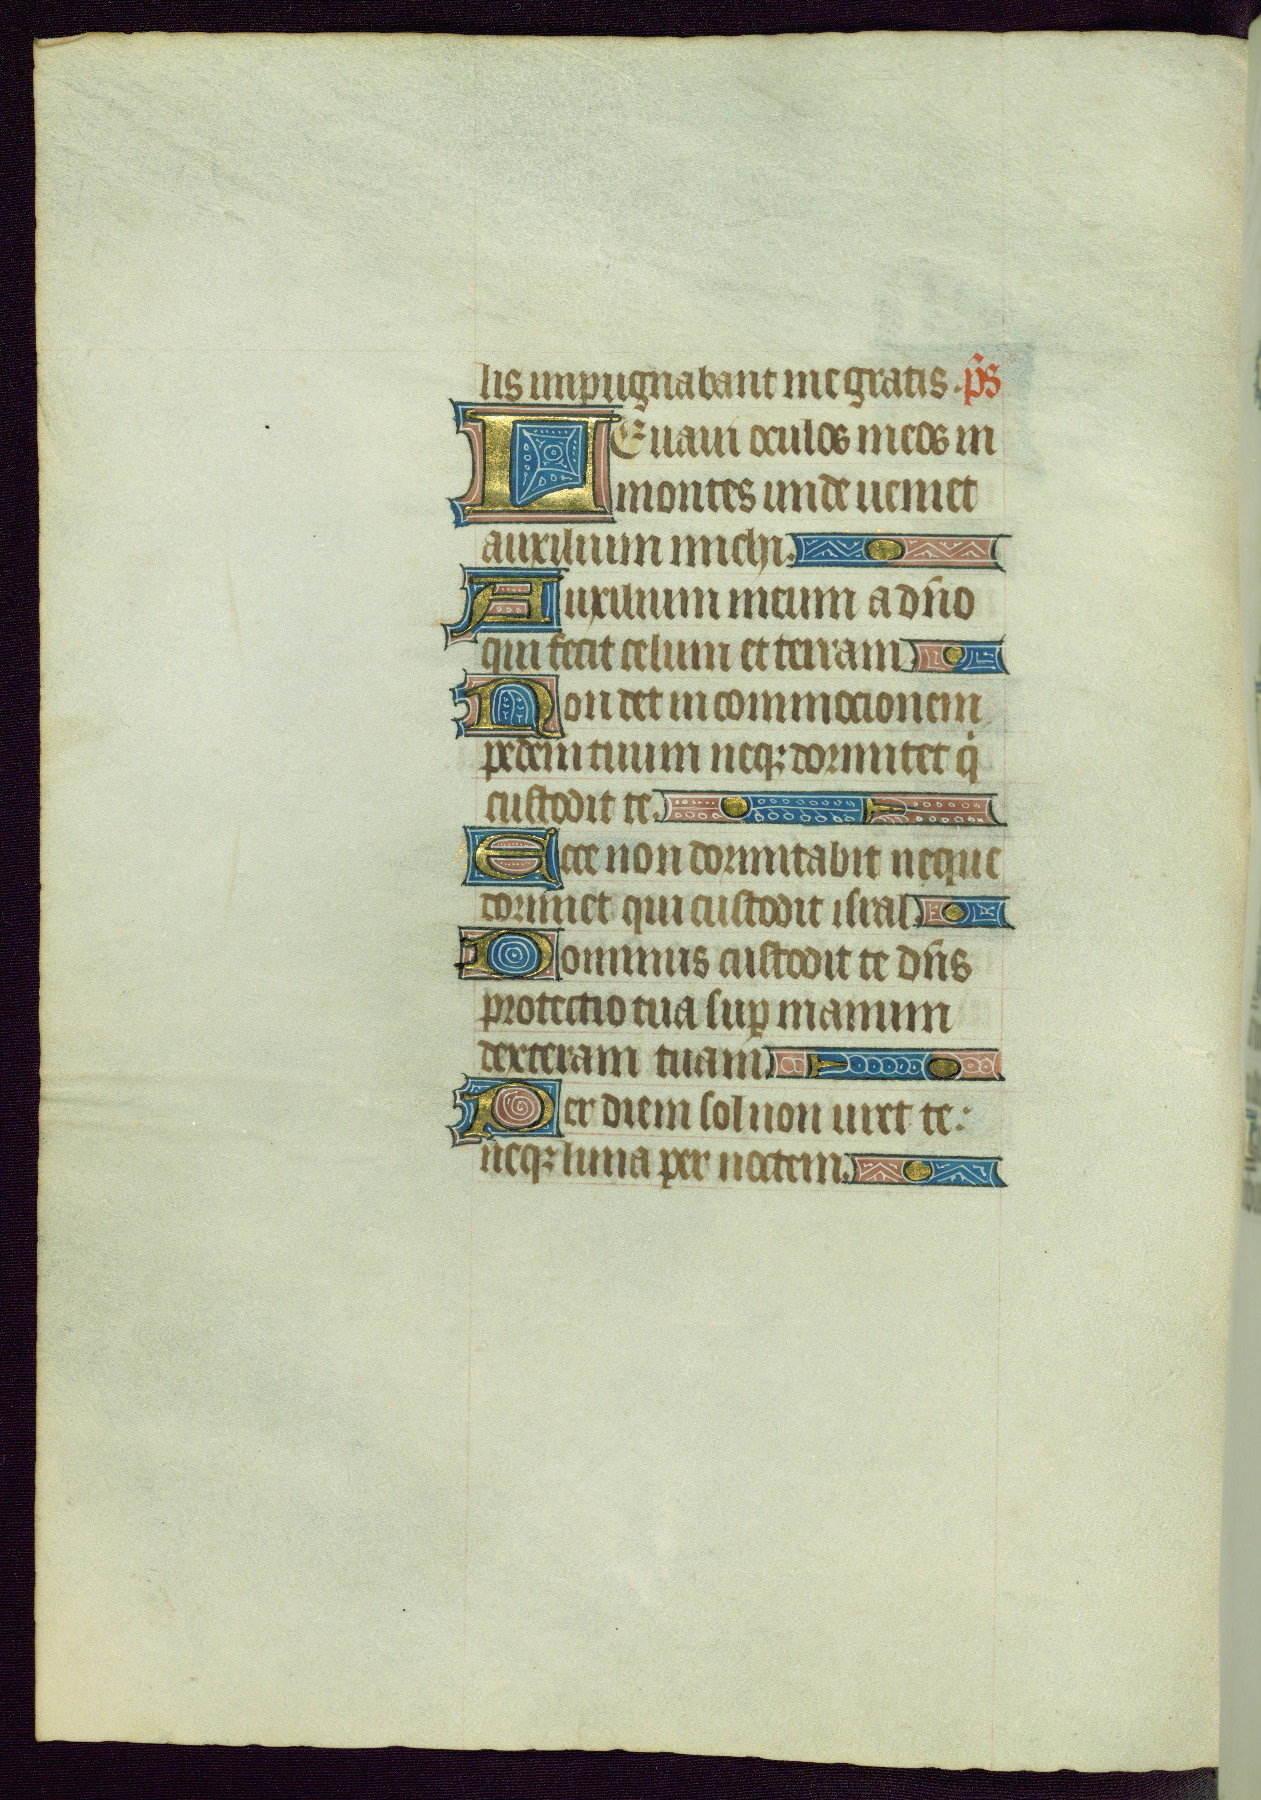 lis inpugnabant me gratis. p̃s
LEuaui oculos meos in
montes unde ueniet
auxilium michi.
Auxilium meum a dño
qui fecit celum et terram.
Non det in commocionem
pedem tuum neqꝫ dormitet q̇
custodit te.
Ecce non dormitabit neque
dormiet qui custodit israł.
Dominus custodit te dñs
protectio tua suꝑ manum
dexteram tuam.
Per diem sol non uret te:
neqꝫ luna per noctem.